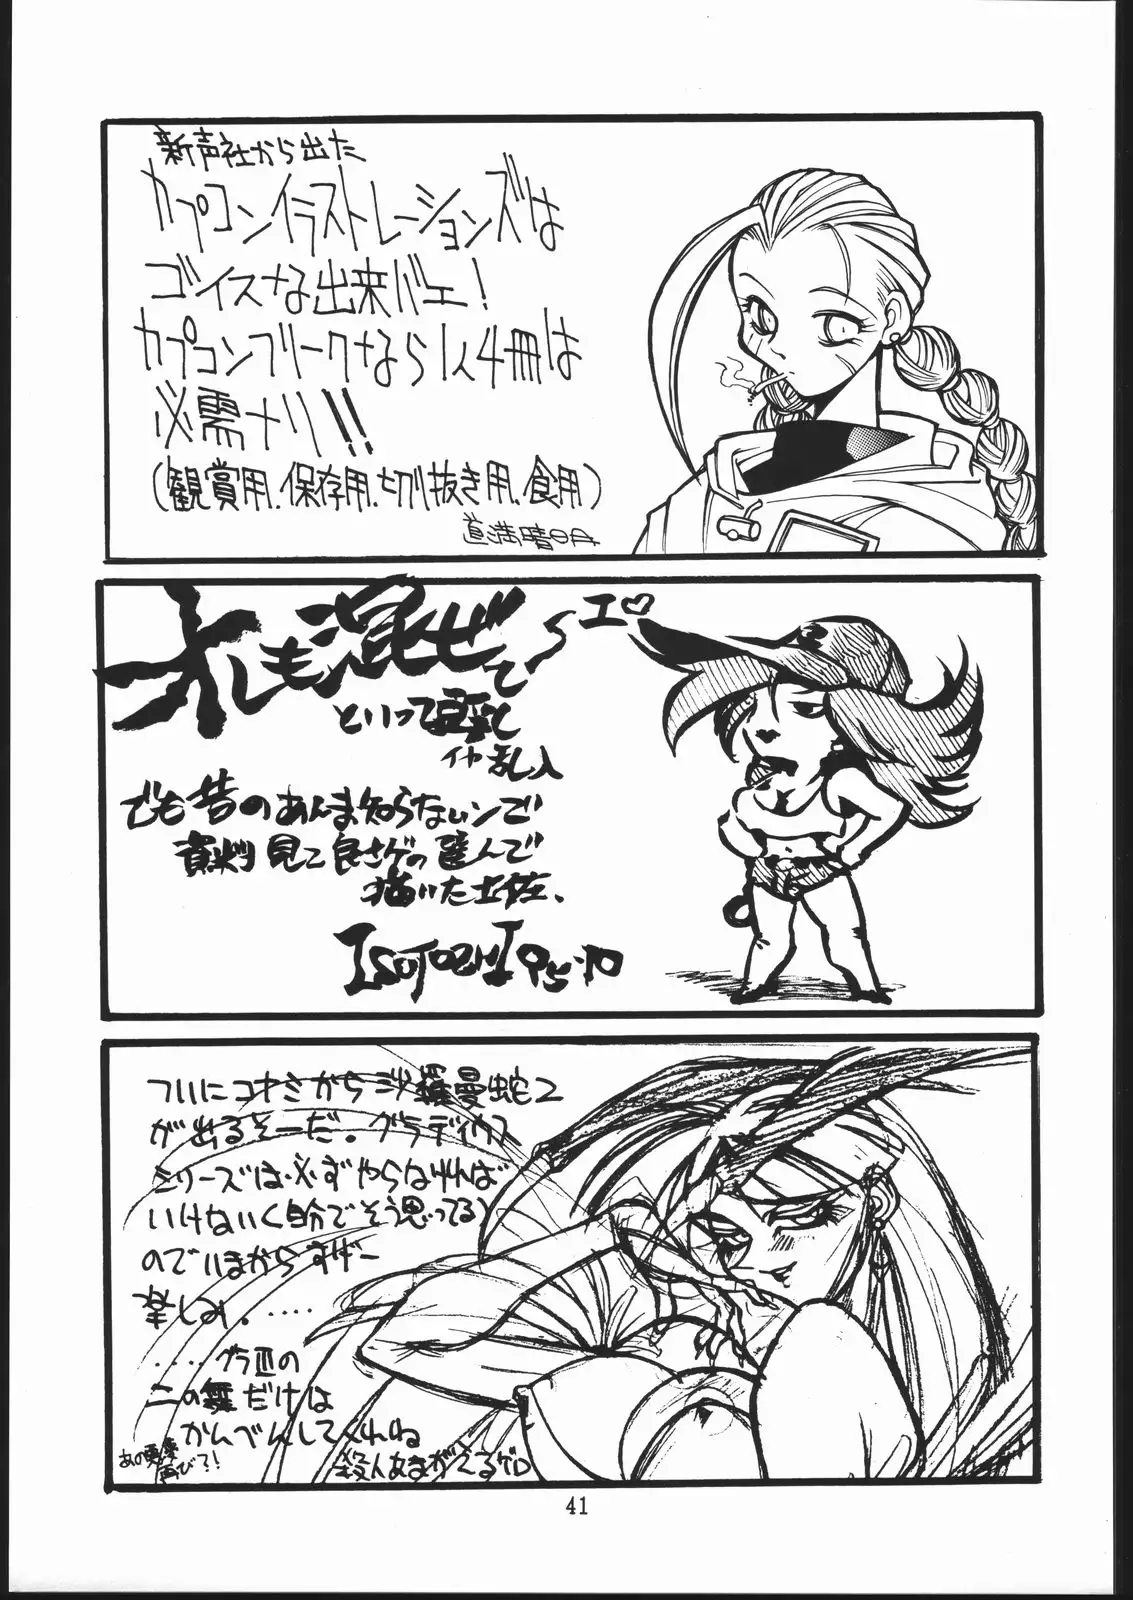 新声社から出た
カプコンイラストレーションズは
ゴイスな出来バエ!
カプコンフリークなら1人4冊は
必需ナリ!!
(観賞用、保存用、切り抜き用、食用)
道満晴明
オレも混ぜて〜エ♡
といって
イヤ乱入
でも昔のあんま知らないンで
資料見て良さゲの選んで
描いた土佐、
ついにコナミから沙羅曼蛇2
が出るそーだ。グラディウス
シリーズは必ずやらなければ
いけないく自分でそう思ってる)
のでいまからすげー
楽しみ。……
……グラIIIの
二の舞だけは
かんべんしてくれね
あの悪夢
再び?!
殺人あまがえるゲロ
41